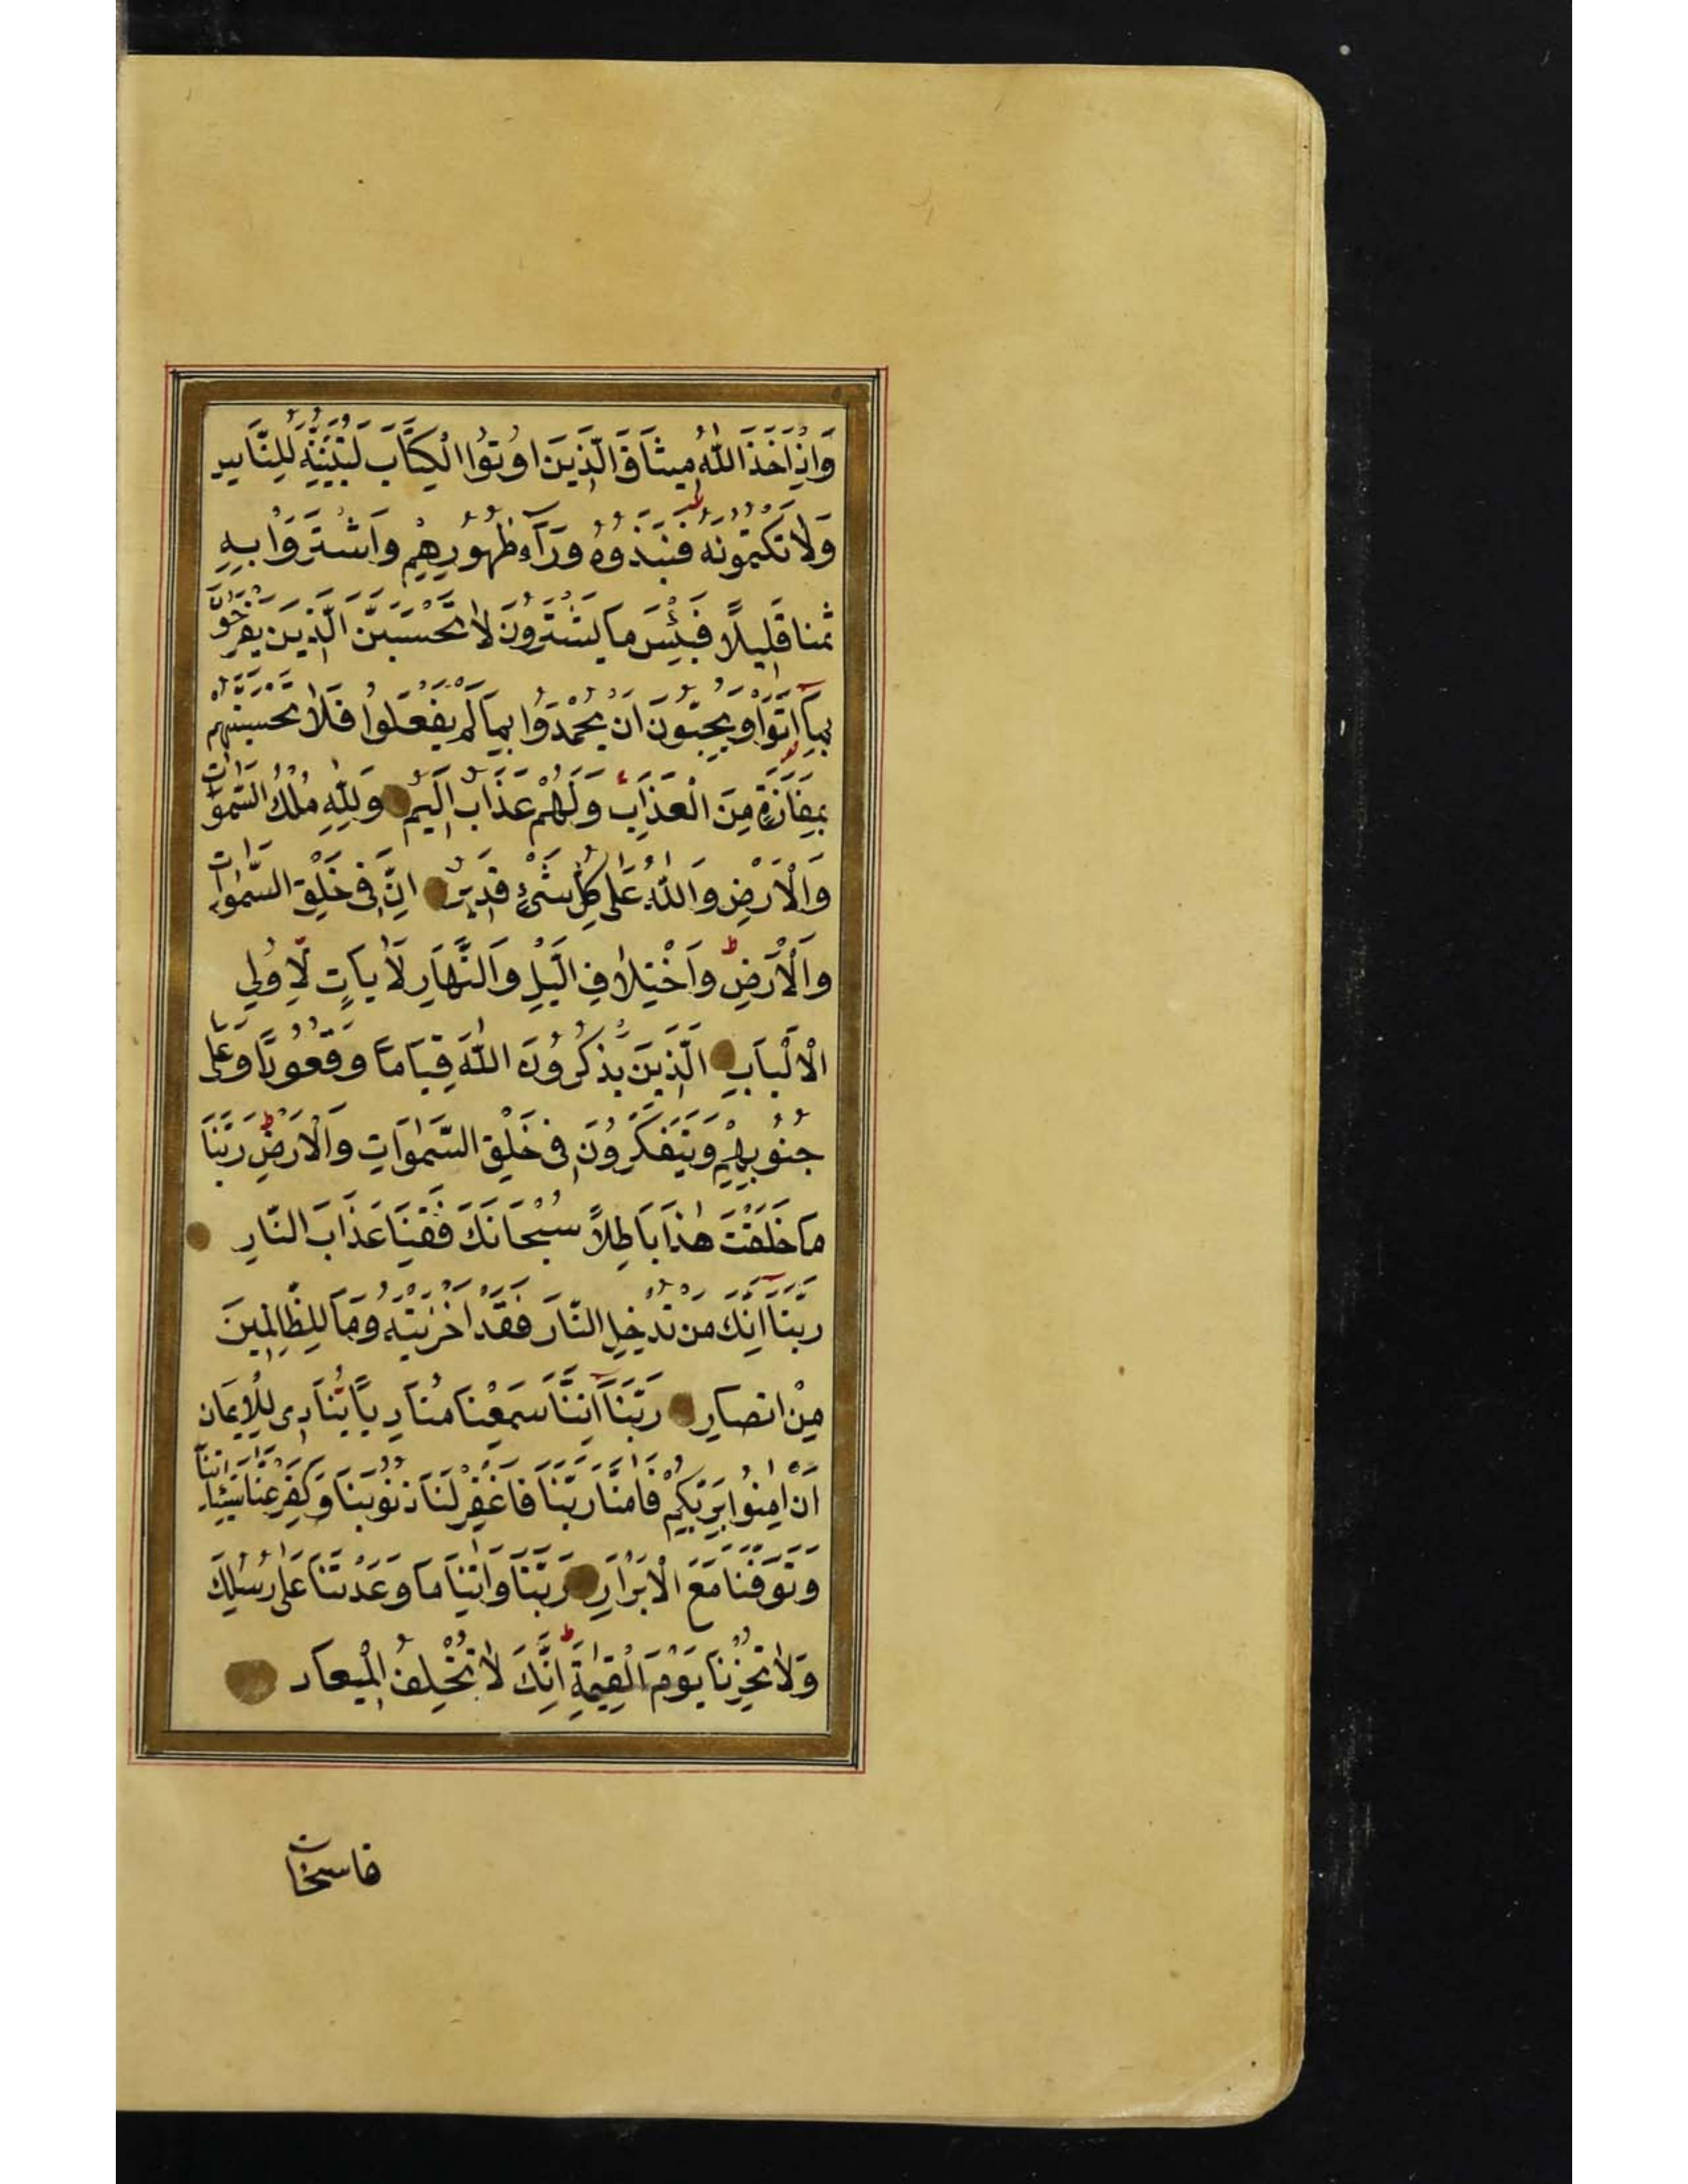 وَاِذْ اَخَذَ اللّٰهُ مِيثَاقَ الَّذِينَ اُوتُوا الْكِتَابَ لَتُبَيِّنُنَّهُ لِلنَّاسِ
وَلَا تَكْتُمُونَهُ فَنَبَذُوهُ وَرَآءَ ظُهُورِهِمْ وَاشْتَرَوْا بِهِ
ثَمَنًا قَلِيلًا فَبِئْسَ مَا يَشْتَرُونَ لَا تَحْسَبَنَّ الَّذِينَ يَفْرَحُونَ
بِمَآ اَتَوْا وَيُحِبُّونَ اَنْ يُحْمَدُوا بِمَا لَمْ يَفْعَلُوا فَلَا تَحْسَبَنَّهُمْ
بِمَفَازَةٍ مِنَ الْعَذَابِ وَلَهُمْ عَذَابٌ اَلِيمٌ وَلِلّٰهِ مُلْكُ السَّمٰوَاتِ
وَالْاَرْضِ وَاللّٰهُ عَلٰى كُلِّ شَىْءٍ قَدِيرٌ اِنَّ فِى خَلْقِ السَّمٰوَاتِ
وَالْاَرْضِ وَاخْتِلَافِ الَّيْلِ وَالنَّهَارِ لَاٰيَاتٍ لِّاُولِي
الْاَلْبَابِ الَّذِينَ يَذْكُرُونَ اللّٰهَ قِيَامًا وَقُعُودًا وَعَلٰى
جُنُوبِهِمْ وَيَتَفَكَّرُونَ فِى خَلْقِ السَّمٰوَاتِ وَالْاَرْضِ رَبَّنَا
مَا خَلَقْتَ هٰذَا بَاطِلًا سُبْحَانَكَ فَقِنَا عَذَابَ النَّارِ
رَبَّنَآ اِنَّكَ مَنْ تُدْخِلِ النَّارَ فَقَدْ اَخْزَيْتَهُ وَمَا لِلظَّالِمِينَ
مِنْ اَنْصَارٍ رَبَّنَآ اِنَّنَا سَمِعْنَا مُنَادِيًا يُنَادِى لِلْاِيمَانِ
اَنْ اٰمِنُوا بِرَبِّكُمْ فَاٰمَنَّا رَبَّنَا فَاغْفِرْ لَنَا ذُنُوبَنَا وَكَفِّرْ عَنَّا سَيِّئَاتِنَا
وَتَوَفَّنَا مَعَ الْاَبْرَارِ رَبَّنَا وَاٰتِنَا مَا وَعَدْتَنَا عَلٰى رُسُلِكَ
وَلَا تُخْزِنَا يَوْمَ الْقِيٰمَةِ اِنَّكَ لَا تُخْلِفُ الْمِيعَادَ
فاستجاب